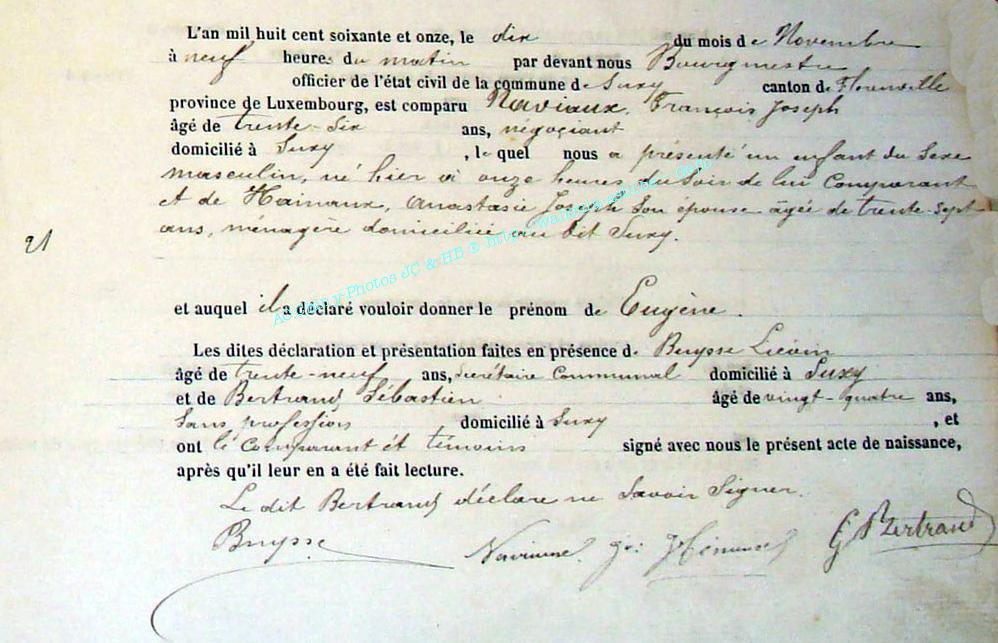 L'an mil huit cent soixante et onze, le dix du mois de Novembre
à neuf heures du matin par devant nous Bourgmestre
officier de l'état civil de la commune de Suxy canton de Florenville
province de Luxembourg, est comparu Naviaux, François Joseph
âgé de trente-six ans, négociant
domicilié à Suxy, le quel nous a présenté un enfant du Sexe
masculin, né hier à onze heures du Soir de lui Comparant
et de Hainaux, Anastasie Joseph Son épouse âgée de trente-sept
ans, ménagère domiciliée au dit Suxy.
21
et auquel il a déclaré vouloir donner le prénom de Eugène.
Les dites déclaration et présentation faites en présence de Buysse Liévin
âgé de trente-neuf ans, Secrétaire Communal domicilié à Suxy
et de Bertrand Sébastien âgé de vingt-quatre ans,
Sans profession domicilié à Suxy, et
ont le Comparant et témoins signé avec nous le présent acte de naissance,
après qu'il leur en a été fait lecture.
Le dit Bertrand déclare ne Savoir Signer.
Buysse Bertrand
Photos JC & HB © http://